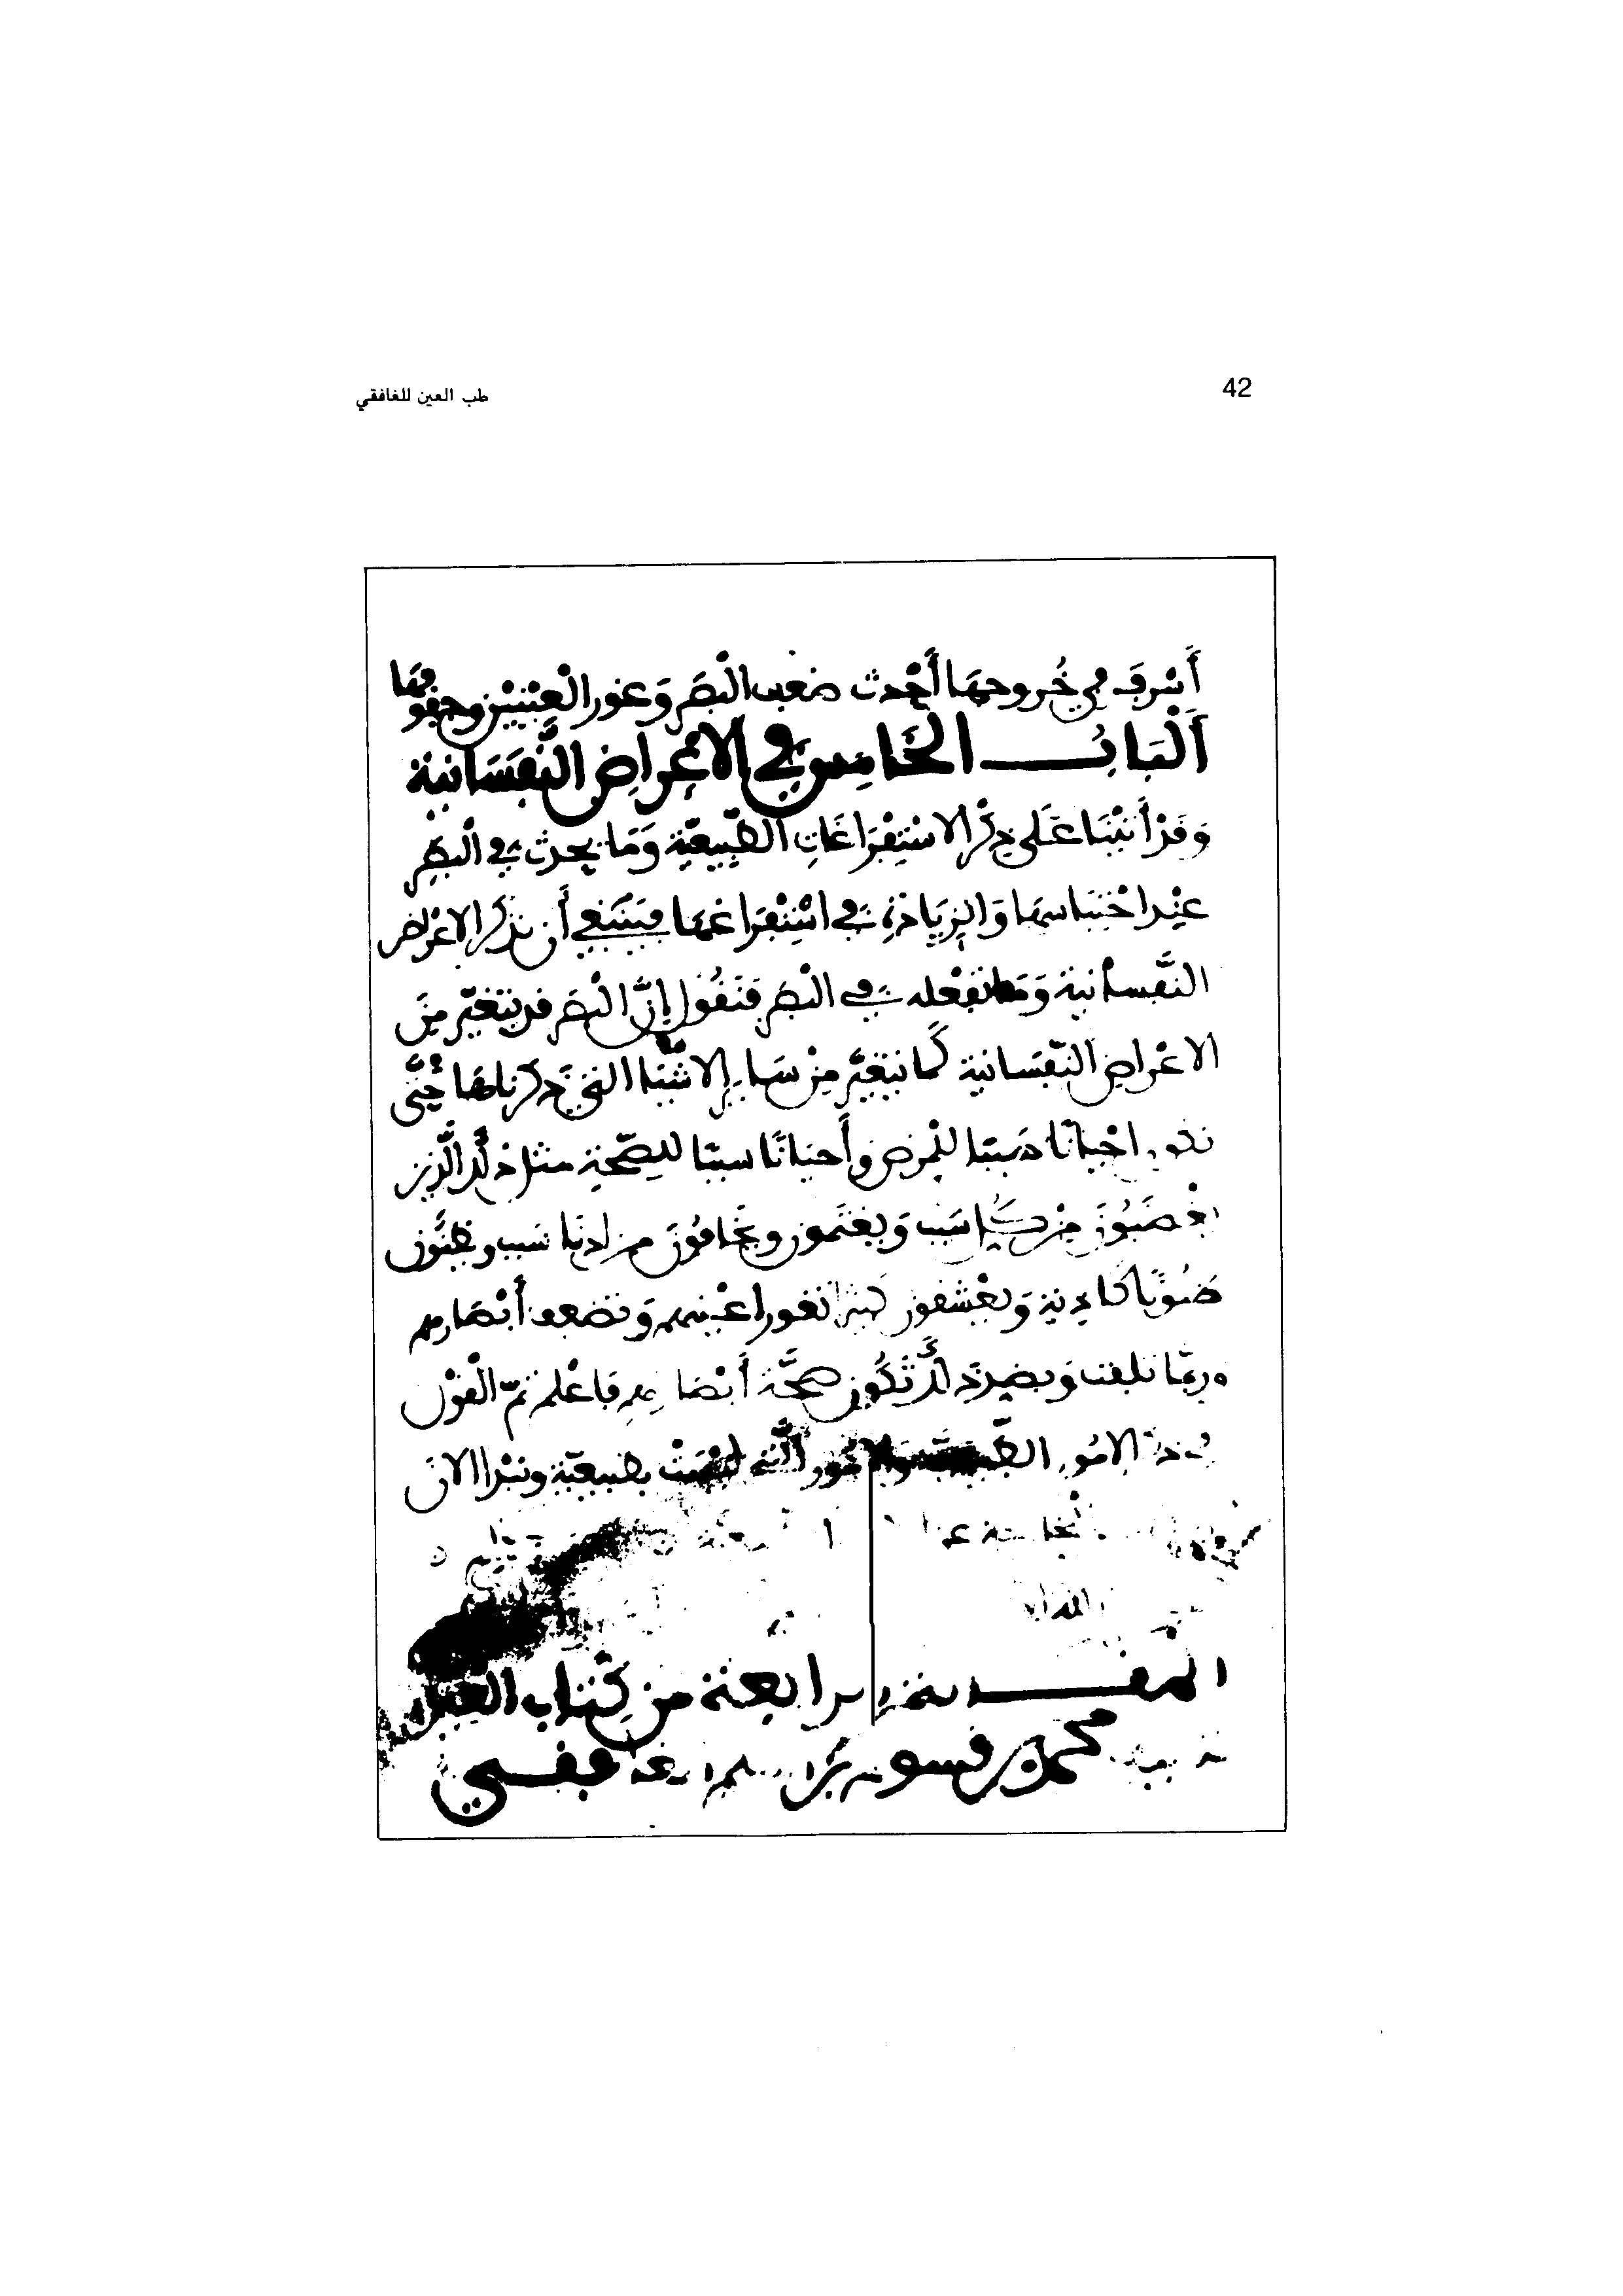 42
طب العين للغافقي
أَسْرِفَ في خُروجها أَحْدث ضعف البَصَر وَغور العَيْنَيْن وجفوفهَا
أَلبَابُ الخَامِس في الاعْراض النَّفسَانية
وَقَدْ أَتَيْنَا عَلَى ذِكْر الاسْتِفْرَاغَاتِ الطَّبِيعيَّةِ وَمَا يحدث في البَصَرِ
عِنْد احْتبَاسها وَالزِيَادَةِ في اسْتِفْرَاغها فيَنْبَغِي أن نذكرَ الاعْراض
النَّفسانية وَمَا تفعله في البَصَر فَنَقُول إنَّ البَصَر قد يتغيّر مِنَ
الاعْراض النّفسَانية كَمَا يَتغيَّر مِنْ سَاير الاشْيَا التي ذكرناها حَتَّى
تكون احْيانًا سَببًا للمرض وأَحيانًا سببًا للصّحَّةِ مثل ذلك الَّذِين
يغضبُونَ مِنْ سَبب وَيغتَمون ويَخَافُونَ من ادنَا سَبب ويظنُّون
ظنُونًا كاذبة وَيعْشقون كثيرا تغور اعْينهم وَتضعف أَبْصَارهم
وربمّا تلفت وَبضد ذلك تَكُون صحَّة أَبْصارهم فَاعْلم تمّ القَوْل
في الامُور الطَّبيعيَّة والامُور الَّتي ليْسَتْ بطبيعيّة ونبْدا الانَ
المقـــالة الرابعة من كِتَاب العين
محمد بن قسوم بن اسلم الغافقي